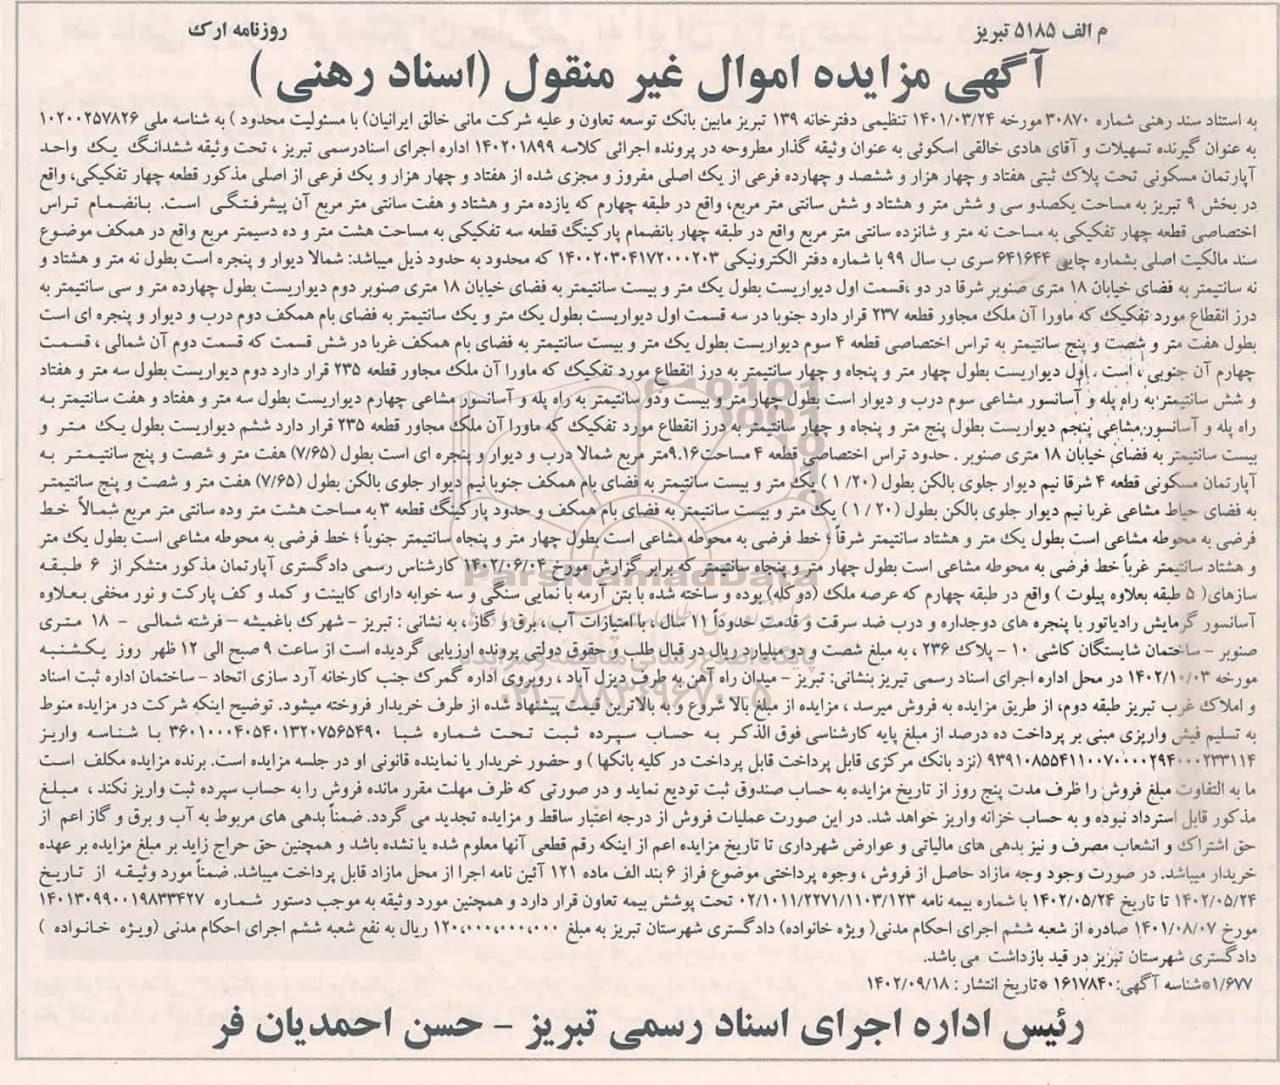 م الف ۵۱۸۵ تبریز
روزنامه ارک
آگهی مزایده اموال غیر منقول (اسناد رهنی )
به استناد سند رهنی شماره ۳۰۸۷۰ مورخه ۱۴۰۱/۰۳/۲۴ تنظیمی دفترخانه ۱۳۹ تبریز مابین بانک توسعه تعاون و علیه شرکت مانی خالق ایرانیان) با مسئولیت محدود ) به شناسه ملی ۱۰۲۰۰۲۵۷۸۲۶
به عنوان گیرنده تسهیلات و آقای هادی خالقی اسکوئی به عنوان وثیقه گذار مطروحه در پرونده اجرائی کلاسه ۱۴۰۲۰۱۸۹۹ اداره اجرای اسنادرسمی تبریز ، تحت وثیقه ششدانگ یک واحد
آپارتمان مسکونی تحت پلاک ثبتی هفتاد و چهار هزار و ششصد و چهارده فرعی از یک اصلی مفروز و مجزی شده از هفتاد و چهار هزار و یک فرعی از اصلی مذکور قطعه چهار تفکیکی، واقع
در بخش ۹ تبریز به مساحت یکصدو سی و شش متر و هشتاد و شش سانتی متر مربع، واقع در طبقه چهارم که یازده متر و هشتاد و هفت سانتی متر مربع آن پیشرفتگی است. بانضمام تراس
اختصاصی قطعه چهار تفکیکی به مساحت نه متر و شانزده سانتی متر مربع واقع در طبقه چهار بانضمام پارکینگ قطعه سه تفکیکی به مساحت هشت متر و ده دسیمتر مربع واقع در همکف موضوع
سند مالکیت اصلی بشماره چاپی ۶۴۱۶۴۴ سری ب سال ۹۹ با شماره دفتر الکترونیکی ۱۴۰۰۲۰۳۰۴۱۷۲۰۰۰۲۰۳ که محدود به حدود ذیل میباشد: شمالا دیوار و پنجره است بطول نه متر و هشتاد و
نه سانتیمتر به فضای خیابان ۱۸ متری صنوبر شرقا در دو ،قسمت اول دیواریست بطول یک متر و بیست سانتیمتر به فضای خیابان ۱۸ متری صنوبر دوم دیواریست بطول چهارده متر و سی سانتیمتر به
درز انقطاع مورد تفکیک که ماورا آن ملک مجاور قطعه ۲۳۷ قرار دارد جنوبا در سه قسمت اول دیواریست بطول یک متر و یک سانتیمتر به فضای بام همکف دوم درب و دیوار و پنجره ای است
بطول هفت متر و شصت و پنج سانتیمتر به تراس اختصاصی قطعه ۴ سوم دیواریست بطول یک متر و بیست سانتیمتر به فضای بام همکف غربا در شش قسمت که قسمت دوم آن شمالی ، قسمت
چهارم آن جنوبی ، است . اول دیواریست بطول چهار متر و پنجاه و چهار سانتیمتر به درز انقطاع مورد تفکیک که ماورا آن ملک مجاور قطعه ۲۳۵ قرار دارد دوم دیواریست بطول سه متر و هفتاد
و شش سانتیمتر به راه پله و آسانسور مشاعی سوم درب و دیوار است بطول چهار متر و بیست ودو سانتیمتر به راه پله و آسانسور مشاعی چهارم دیواریست بطول سه متر و هفتاد و هفت سانتیمتر به
راه پله و آسانسور مشاعی پنجم دیواریست بطول پنج متر و پنجاه و چهار سانتیمتر به درز انقطاع مورد تفکیک که ماورا آن ملک مجاور قطعه ۲۳۵ قرار دارد ششم دیواریست بطول یک متر و
بیست سانتیمتر به فضای خیابان ۱۸ متری صنوبر . حدود تراس اختصاصی قطعه ۴ مساحت۹.۱۶متر مربع شمالا درب و دیوار و پنجره ای است بطول (۷/۶۵) هفت متر و شصت و پنج سانتیمتر به
آپارتمان مسکونی قطعه ۴ شرقا نیم دیوار جلوی بالکن بطول (۲۰/ ۱ ) یک متر و بیست سانتیمتر به فضای بام همکف جنوبا نیم دیوار جلوی بالکن بطول (۷/۶۵) هفت متر و شصت و پنج سانتیمتر
به فضای حیاط مشاعی غربا نیم دیوار جلوی بالکن بطول (۲۰ / ۱ ) یک متر و بیست سانتیمتر به فضای بام همکف و حدود پارکینگ قطعه ۳ به مساحت هشت متر وده سانتی متر مربع شمالاً خط
فرضی به محوطه مشاعی است بطول یک متر و هشتاد سانتیمتر شرقاً ؛ خط فرضی به محوطه مشاعی است بطول چهار متر و پنجاه سانتیمتر جنوباً ؛ خط فرضی به محوطه مشاعی است بطول یک متر
و هشتاد سانتیمتر غرباً خط فرضی به محوطه مشاعی است بطول چهار متر و پنجاه سانتیمتر که برابر گزارش مورخ ۱۴۰۲/۰۶/۰۴ کارشناس رسمی دادگستری آپارتمان مذکور متشکر از ۶ طبقه
سازهای( ۵ طبقه بعلاوه پیلوت ) واقع در طبقه چهارم که عرصه ملک (دوکله) بوده و ساخته شده با بتن آرمه با نمایی سنگی و سه خوابه دارای کابینت و کمد و کف پارکت و نور مخفی بعلاوه
آسانسور گرمایش رادیاتور با پنجره های دوجداره و درب ضد سرقت و قدمت حدوداً ۱۱ سال ، با امتیازات آب ، برق و گاز ، به نشانی : تبریز – شهرک باغمیشه – فرشته شمالی – ۱۸ متری
صنوبر – ساختمان شایستگان کاشی ۱۰ – پلاک ۲۳۶ ، به مبلغ شصت و دو میلیارد ریال در قبال طلب و حقوق دولتی پرونده ارزیابی گردیده است از ساعت ۹ صبح الی ۱۲ ظهر روز یکشنبه
مورخه ۱۴۰۲/۱۰/۰۳ در محل اداره اجرای اسناد رسمی تبریز بنشانی: تبریز – میدان راه آهن به طرف دیزل آباد ، روبروی اداره گمرک جنب کارخانه آرد سازی اتحاد – ساختمان اداره ثبت اسناد
و املاک غرب تبریز طبقه دوم، از طریق مزایده به فروش میرسد ، مزایده از مبلغ بالا شروع و به بالاترین قیمت پیشنهاد شده از طرف خریدار فروخته میشود. توضیح اینکه شرکت در مزایده منوط
به تسلیم فیش واریزی مبنی بر پرداخت ده درصد از مبلغ پایه کارشناسی فوق الذکر به حساب سپرده ثبت تحت شماره شبا ۳۶۰۱۰۰۰۰۴۰۵۴۰۱۳۲۰۷۵۶۵۴۹۰ با شناسه واریز
۹۳۹۱۰۸۵۵۴۱۱۰۰۷۰۰۰۰۲۹۴۰۰۰۲۳۳۱۱۴ (نزد بانک مرکزی قابل پرداخت قابل پرداخت در کلیه بانکها ) و حضور خریدار یا نماینده قانونی او در جلسه مزایده است. برنده مزایده مکلف است
ما به التفاوت مبلغ فروش را ظرف مدت پنج روز از تاریخ مزایده به حساب صندوق ثبت تودیع نماید و در صورتی که ظرف مهلت مقرر مانده فروش را به حساب سپرده ثبت واریز نکند ، مبلغ
مذکور قابل استرداد نبوده و به حساب خزانه واریز خواهد شد. در این صورت عملیات فروش از درجه اعتبار ساقط و مزایده تجدید می گردد. ضمناً بدهی های مربوط به آب و برق و گاز اعم از
حق اشتراک و انشعاب مصرف و نیز بدهی های مالیاتی و عوارض شهرداری تا تاریخ مزایده اعم از اینکه رقم قطعی آنها معلوم شده یا نشده باشد و همچنین حق حراج زاید بر مبلغ مزایده بر عهده
خریدار میباشد. در صورت وجود وجه مازاد حاصل از فروش ، وجوه پرداختی موضوع فراز ۶ بند الف ماده ۱۲۱ آئین نامه اجرا از محل مازاد قابل پرداخت میباشد. ضمناً مورد وثیقه از تاریخ
۱۴۰۲/۰۵/۲۴ تا تاریخ ۱۴۰۲/۰۵/۲۴ با شماره بیمه نامه ۰۲/۱۰۱۱/۲۲۷۱/۱۱۰۳/۱۲۳ تحت پوشش بیمه تعاون قرار دارد و همچنین مورد وثیقه به موجب دستور شماره ۱۴۰۱۳۰۹۹۰۰۱۹۸۳۳۴۲۷
مورخ ۱۴۰۱/۰۸/۰۷ صادره از شعبه ششم اجرای احکام مدنی( ویژه خانواده) دادگستری شهرستان تبریز به مبلغ ۱۲۰,۰۰۰,۰۰۰,۰۰۰ ریال به نفع شعبه ششم اجرای احکام مدنی (ویژه خانواده )
دادگستری شهرستان تبریز در قید بازداشت می باشد.
۱/۶۷۷*شناسه آگهی: ۱۶۱۷۸۴۰ *تاریخ انتشار : ۱۴۰۲/۰۹/۱۸
رئیس اداره اجرای اسناد رسمی تبریز – حسن احمدیان فر
ParsNamadData
پایگاه اطلاع رسانی مناقصه و مزایده
۰۲۱-۸۸۳۴۹۶۷۰-۵